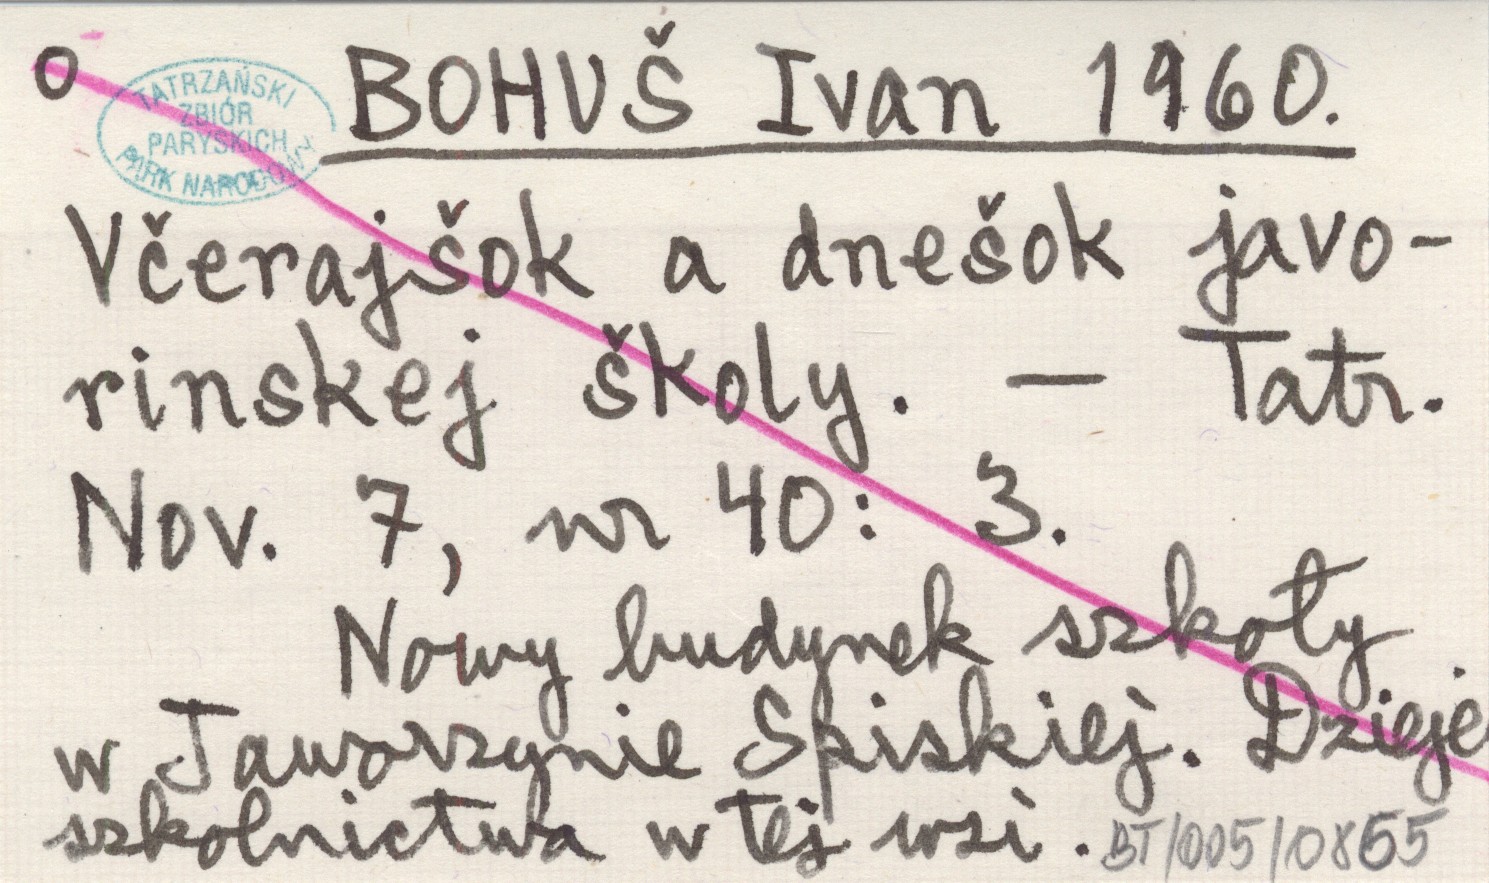 o
TATRZAŃSKI
ZBIÓR
PARYSKICH
PARK NARODOWY
BOHUŠ Ivan 1960.
Včerajšok a dnešok javo-
rinskej školy. — Tatr.
Nov. 7, nr 40: 3.
Nowy budynek szkoły
w Jaworzynie Spiskiej. Dzieje
szkolnictwa w tej wsi.
BT/005/0855